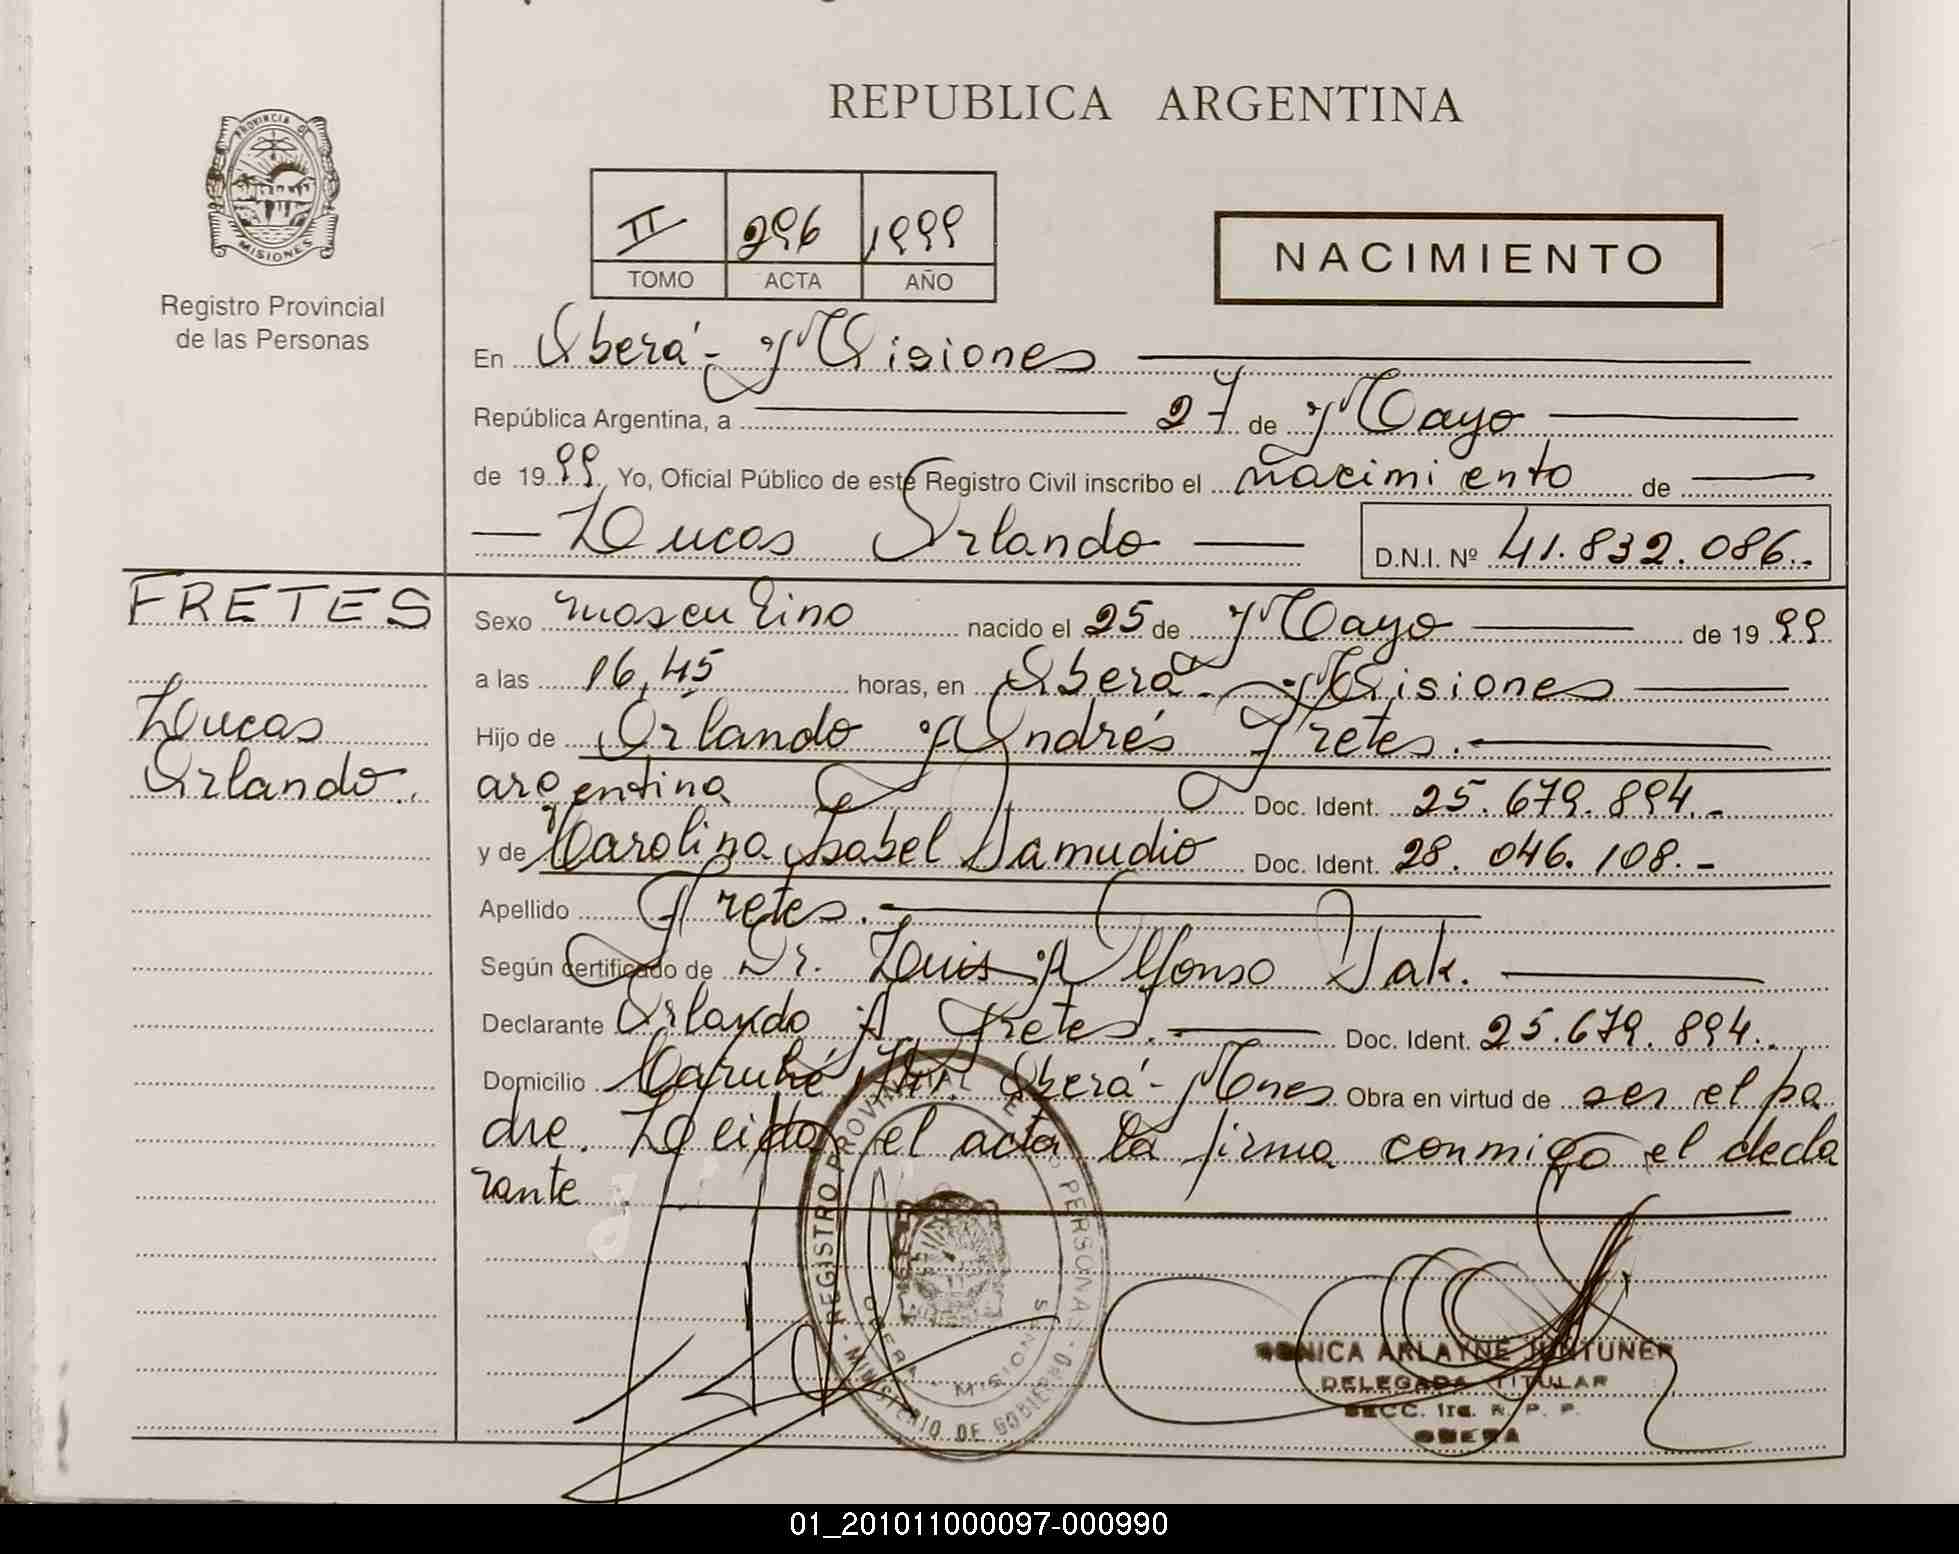 REPUBLICA ARGENTINA
PROVINCIA DE
MISIONES
Registro Provincial
de las Personas
II 296 1999
TOMO ACTA AÑO
NACIMIENTO
En Oberá - Misiones
República Argentina, a 27 de Mayo
de 1999 Yo, Oficial Público de este Registro Civil inscribo el nacimiento de
Lucas Orlando D.N.I. Nº 41.832.086.-
FRETES
Lucas
Orlando.
Sexo masculino nacido el 25 de Mayo de 1999
a las 16,45 horas, en Oberá - Misiones
Hijo de Orlando Andrés Fretes.
argentina Doc. Ident. 25.679.894.-
y de Carolina Isabel Samudio Doc. Ident. 28.046.108.-
Apellido Fretes.
Según certificado de Dr. Luis Alfonso Sak.
Declarante Orlando A. Fretes. Doc. Ident. 25.679.894.
Domicilio Oberá - Mnes Obra en virtud de ser el pa
dre. Leida el acta la firma conmigo el decla
rante
REGISTRO PROVINCIAL DE LAS PERSONAS - MINISTERIO DE GOBIERNO
OBERA - MISIONES
MONICA ARLAYNE JUNTUNEN
DELEGADA TITULAR
SECC. 1ra. R. P. P.
OBERA
01_201011000097-000990